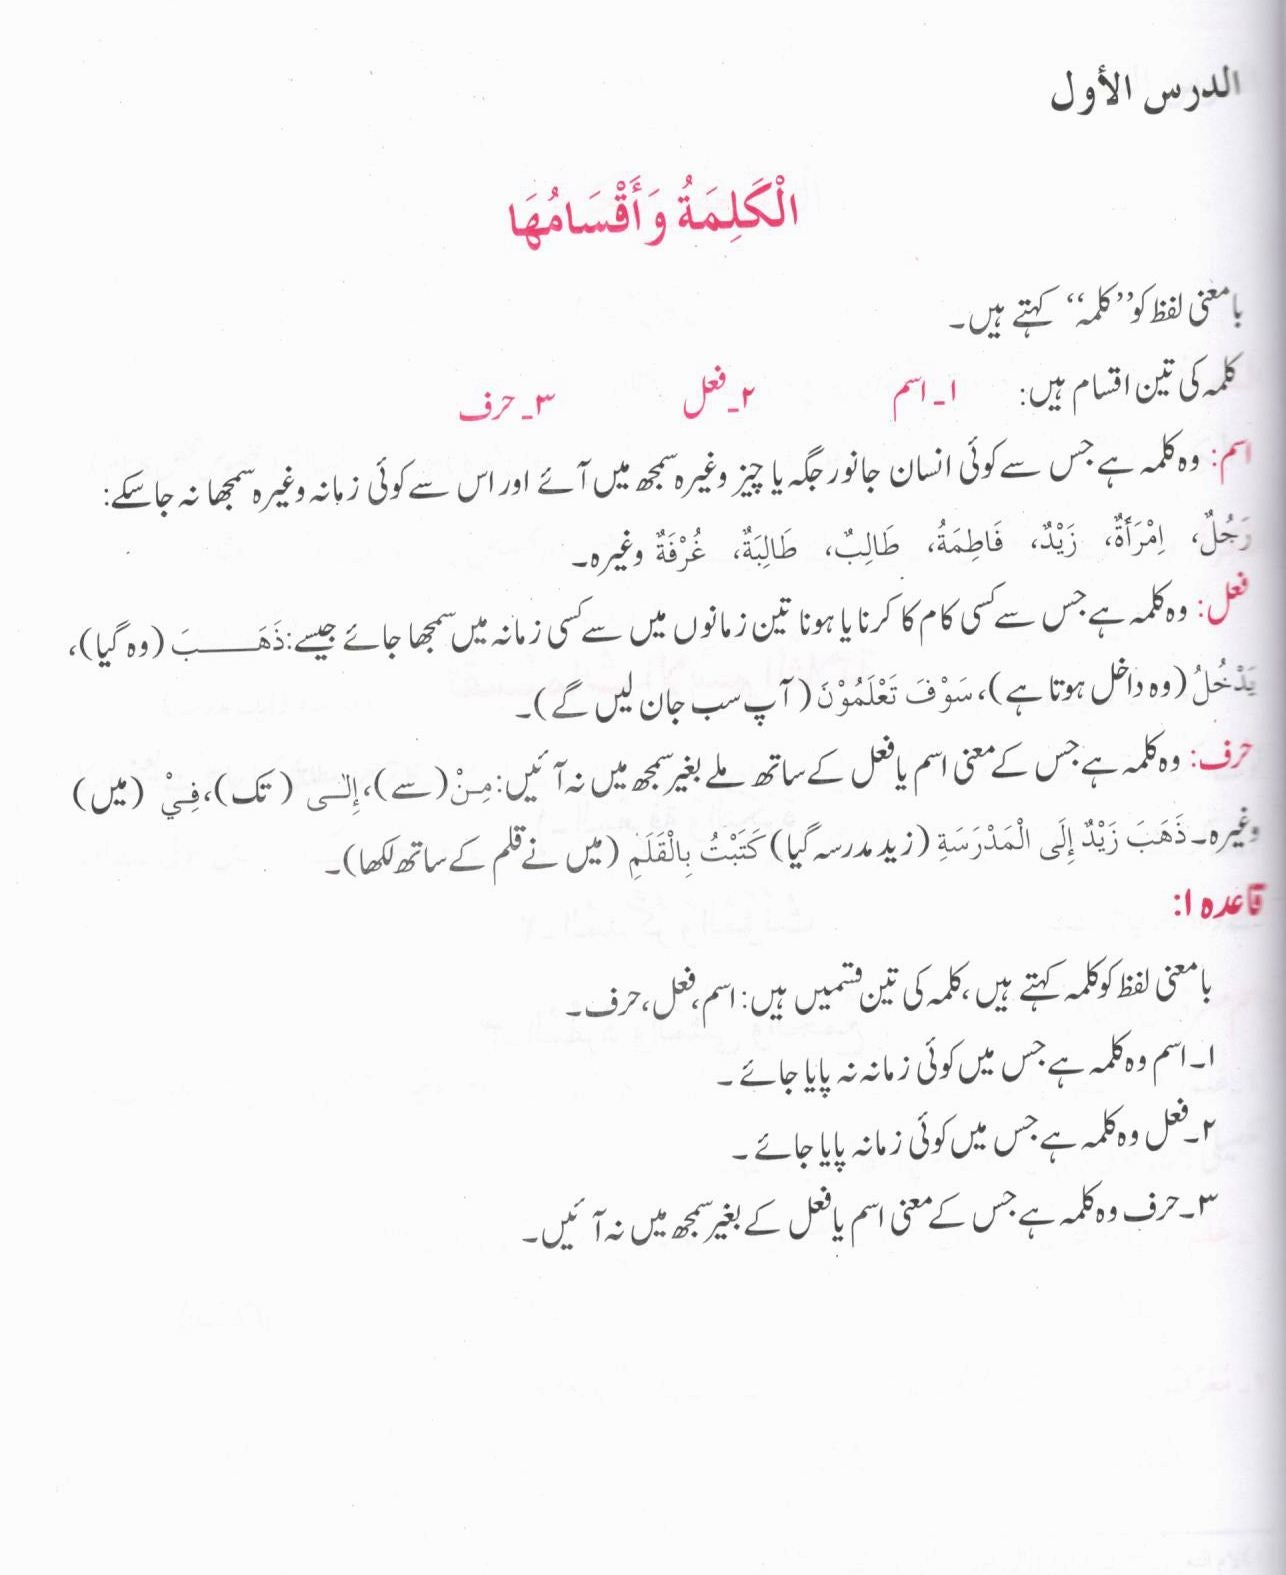 الدرس الأول
الْكَلِمَةُ وَأَقْسَامُهَا
بامعنی لفظ کو ”کلمہ“ کہتے ہیں۔
کلمہ کی تین اقسام ہیں: ۱۔ اسم ۲۔ فعل ۳۔ حرف
اسم: وہ کلمہ ہے جس سے کوئی انسان جانور جگہ یا چیز وغیرہ سمجھ میں آئے اور اس سے کوئی زمانہ وغیرہ سمجھا نہ جاسکے:
رَجُلٌ، اِمْرَأَةٌ، زَيْدٌ، فَاطِمَةُ، طَالِبٌ، طَالِبَةٌ، غُرْفَةٌ وغیرہ۔
فعل: وہ کلمہ ہے جس سے کسی کام کا کرنا یا ہونا تین زمانوں میں سے کسی زمانہ میں سمجھا جائے جیسے: ذَهَـــــبَ (وہ گیا)،
يَدْخُلُ (وہ داخل ہوتا ہے)، سَوْفَ تَعْلَمُوْنَ (آپ سب جان لیں گے)۔
حرف: وہ کلمہ ہے جس کے معنی اسم یا فعل کے ساتھ ملے بغیر سمجھ میں نہ آئیں: مِنْ (سے)، إِلٰى (تک)، فِيْ (میں)
وغیرہ۔ ذَهَبَ زَيْدٌ إِلَى الْمَدْرَسَةِ (زید مدرسہ گیا) كَتَبْتُ بِالْقَلَمِ (میں نے قلم کے ساتھ لکھا)۔
قاعدہ ۱:
بامعنی لفظ کو کلمہ کہتے ہیں، کلمہ کی تین قسمیں ہیں: اسم، فعل، حرف۔
۱۔ اسم وہ کلمہ ہے جس میں کوئی زمانہ نہ پایا جائے۔
۲۔ فعل وہ کلمہ ہے جس میں کوئی زمانہ پایا جائے۔
۳۔ حرف وہ کلمہ ہے جس کے معنی اسم یا فعل کے بغیر سمجھ میں نہ آئیں۔